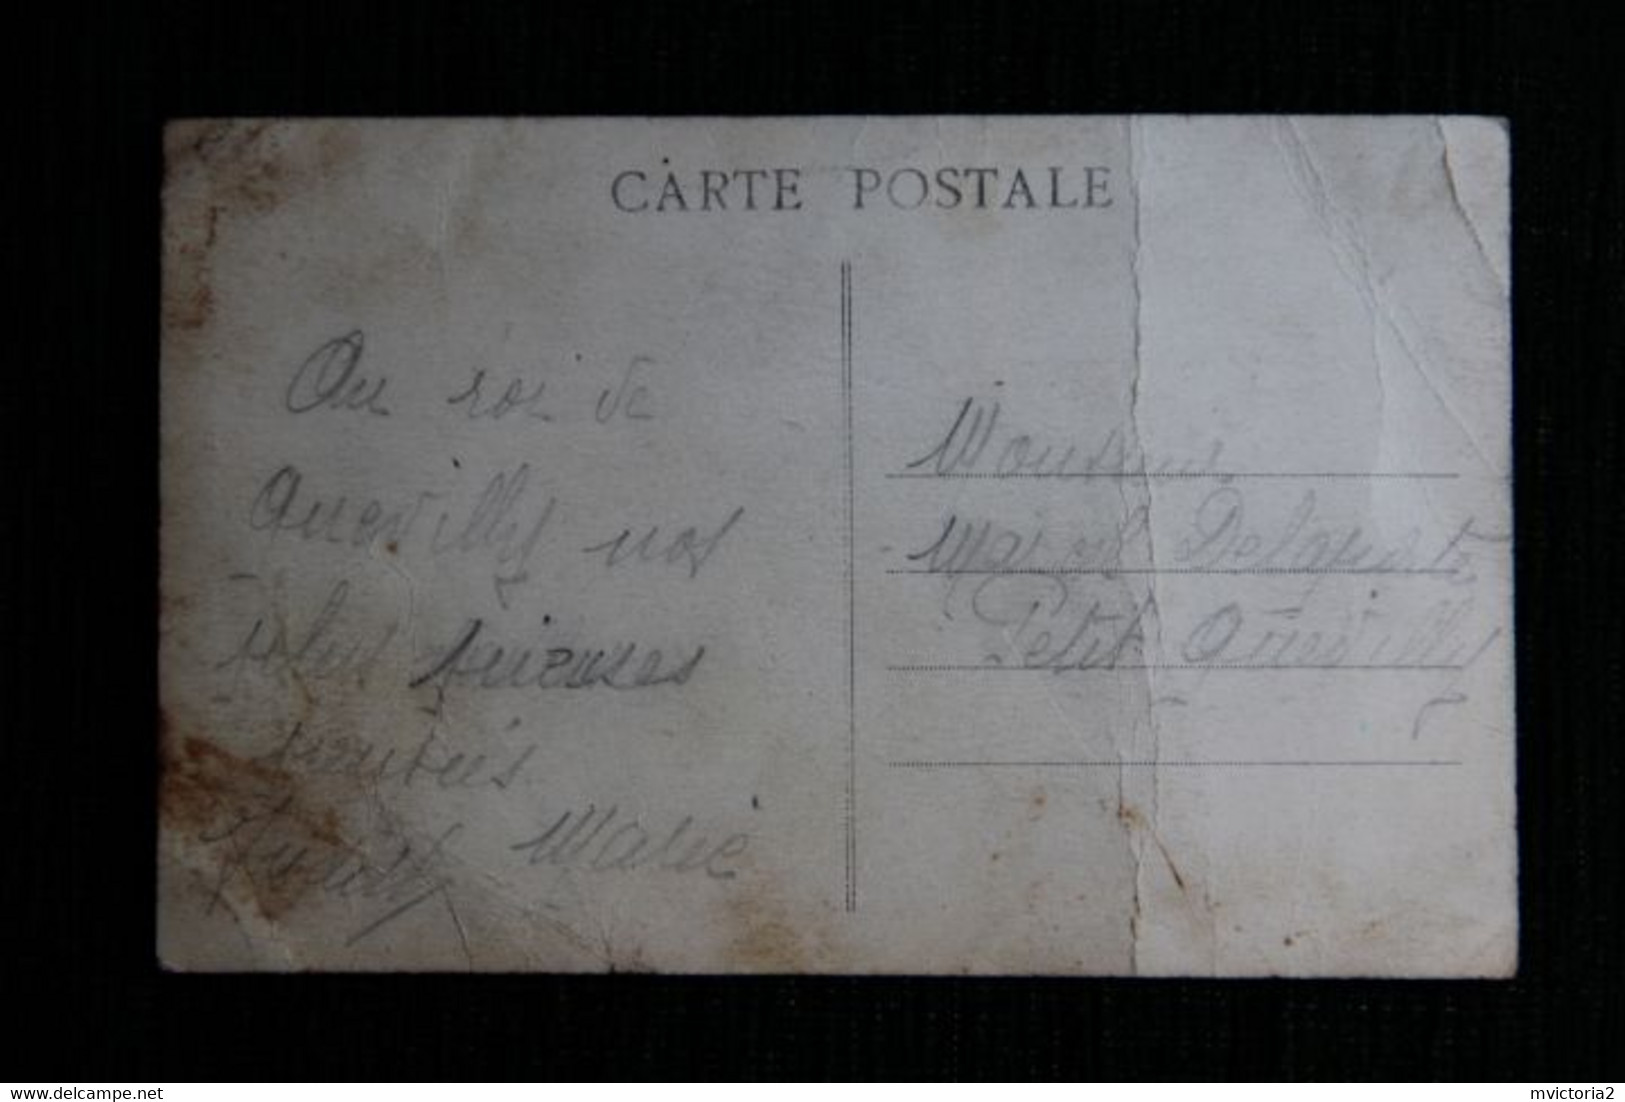 CARTE POSTALE
Au roi de
Quevilly nos
plus
amitiés
Marie
Monsieur
Marcel
Petit Quevilly
delcampe.net
mvictoria2